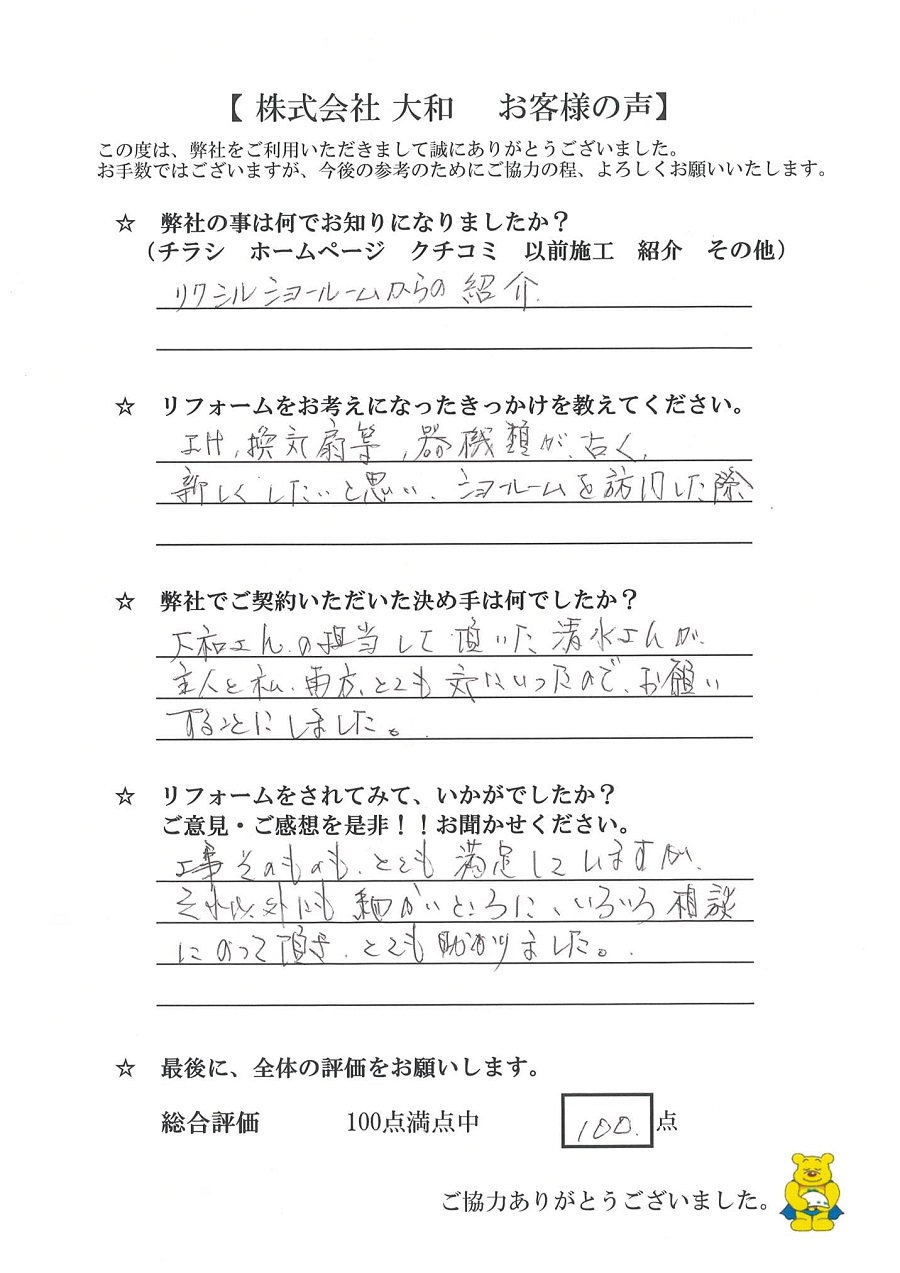 【 株式会社 大和　お客様の声】
この度は、弊社をご利用いただきまして誠にありがとうございました。
お手数ではございますが、今後の参考のためにご協力の程、よろしくお願いいたします。
☆　弊社の事は何でお知りになりましたか？
（チラシ　ホームページ　クチコミ　以前施工　紹介　その他）
リクシルショールームからの紹介.
☆　リフォームをお考えになったきっかけを教えてください。
エコキュート、換気扇等、器機類が、古く、
新しくしたいと思い、ショールームを訪問した際
☆　弊社でご契約いただいた決め手は何でしたか？
大和さんの担当して頂いた清水さんが、
主人と私、両方、とても気にいったので、お願い
することにしました。
☆　リフォームをされてみて、いかがでしたか？
ご意見・ご感想を是非！！お聞かせください。
工事そのものも、とても満足していますが、
それ以外にも細かいところに、いろいろ相談
にのって頂き、とても助かりました。
☆　最後に、全体の評価をお願いします。
総合評価　100点満点中　100.点
ご協力ありがとうございました。